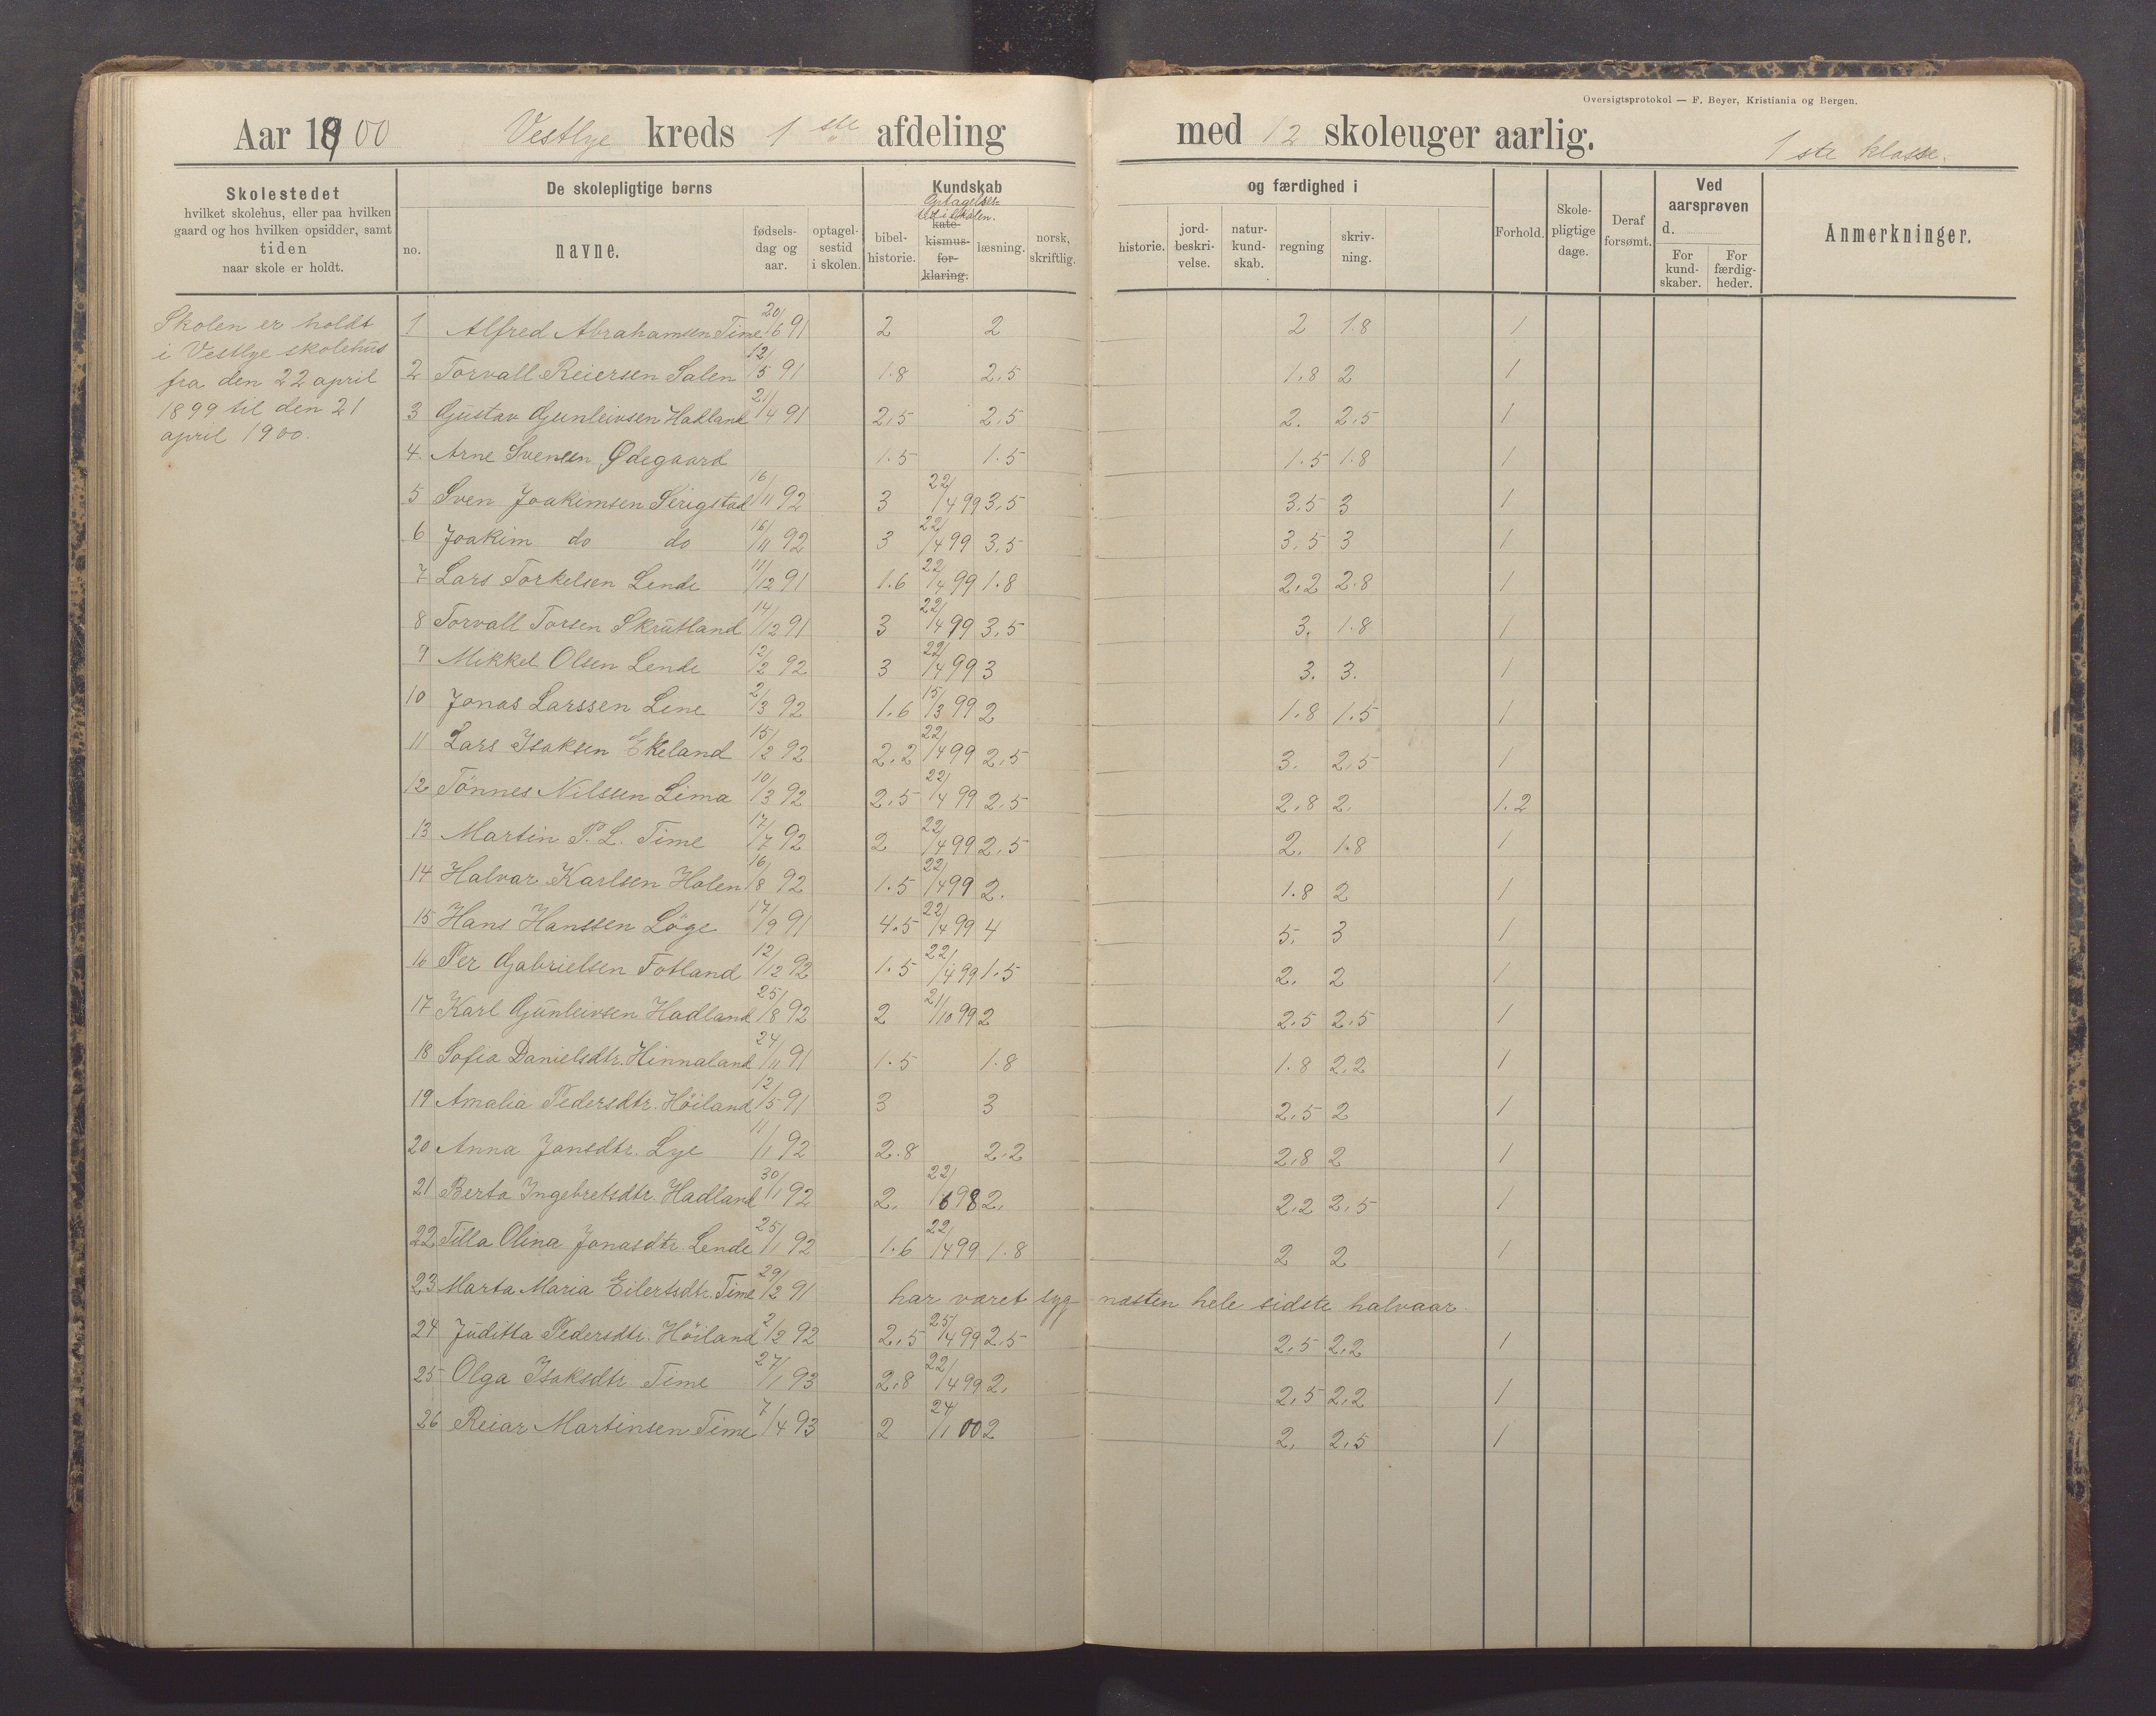 Oversigtsprotokol — F. Beyer, Kristiania og Bergen.
Aar 1900 Vestlye kreds 1ste afdeling med 12 skoleuger aarlig. 1ste klasse.
Skolestedet
hvilket skolehus, eller paa hvilken
gaard og hos hvilken opsidder, samt
tiden
naar skole er holdt.
De skolepligtige børns
no.
navne.
fødsels-
dag og
aar.
optagel-
sestid
i skolen.
Kundskab
Optagelses-
tid i skolen.
bibel-
historie.
kate-
kismus-
for-
klaring.
læsning.
norsk,
skriftlig.
og færdighed i
historie.
jord-
beskri-
velse.
natur-
kund-
skab.
regning
skriv-
ning.
Forhold.
Skole-
pligtige
dage.
Deraf
forsømt.
Ved
aarsprøven
d.
For
kund-
skaber.
For
færdig-
heder.
Anmerkninger.
Skolen er holdt
i Vestlye skolehus
fra den 22 april
1899 til den 21
april 1900.
1 Alfred Abrahamsen Time 20/6 91 2 2 2 1.8 1
2 Torvall Reiersen Salen 12/5 91 1.8 2,5 1,8 2 1
3 Gustav Gunleivsen Hadland 21/4 91 2,5 2,5 2. 2,5 1
4. Arne Svensen Ødegaard 1.5 1.5 1.5 1.8 1
5 Sven Joakimsen Serigstad 16/11 92 3 22/4 99 3,5 3.5 3 1
6 Joakim do do 16/11 92 3 22/4 99 3,5 3,5 3 1
7 Lars Torkelsen Lende 11/12 91 1.6 22/4 99 1.8 2,2 2.8 1
8 Torvall Torsen Skrutland 14/12 91 3 22/4 99 3,5 3. 1.8 1
9 Mikkel Olsen Lende 12/2 92 3 22/4 99 3 3. 3. 1
10 Jonas Larssen Lene 2/3 92 1.6 15/3 99 2 1.8 1.5 1
11 Lars Isaksen Ekeland 15/2 92 2,2 22/4 99 2,5 3. 2,5 1
12 Tönnes Nilssen Lima 10/3 92 2,5 22/4 99 2,5 2,8 2. 1.2
13 Martin P. L. Time 17/7 92 2 22/4 99 2,5 2. 1.8 1
14 Halvar Karlsen Holen 16/8 92 1.5 22/4 99 2. 1.8 2 1
15 Hans Hanssen Löge 17/9 91 4.5 22/4 99 4 5. 3 1
16 Per Gabrielsen Fotland 12/12 92 1.5 22/4 99 1.5 2. 2 1
17 Karl Gunleivsen Hadland 25/8 92 2 21/10 99 2 2.5 2.5 1
18 Sofia Danielsdtr. Hinnaland 24/11 91 1.5 1.8 1.8 2,2 1
19 Amalia Pedersdtr. Höiland 12/5 91 3 3 2,5 2 1
20 Anna Jansdtr. Lye 11/1 92 2.8 2.2 2,8 2 1
21 Berta Ingebretsdtr. Hadland 30/1 92 2. 22/6 98 2. 2,2 2,5 1
22 Tilla Olina Jonasdtr. Lende 25/1 92 1.6 22/4 99 1.8 2 2 1
23 Marta Maria Eilertsdtr. Time 29/2 91 har været syg næsten hele sidste halvaar.
24 Juditta Pedersdtr. Höiland 2/2 92 2,5 25/4 99 2.5 2,5 2,2 1
25 Olga Isaksdtr Time 27/1 93 2,8 22/4 99 2. 2,5 2,2 1
26 Reiar Martinsen Time 7/4 93 2 24/1 00 2 2. 2,5 1